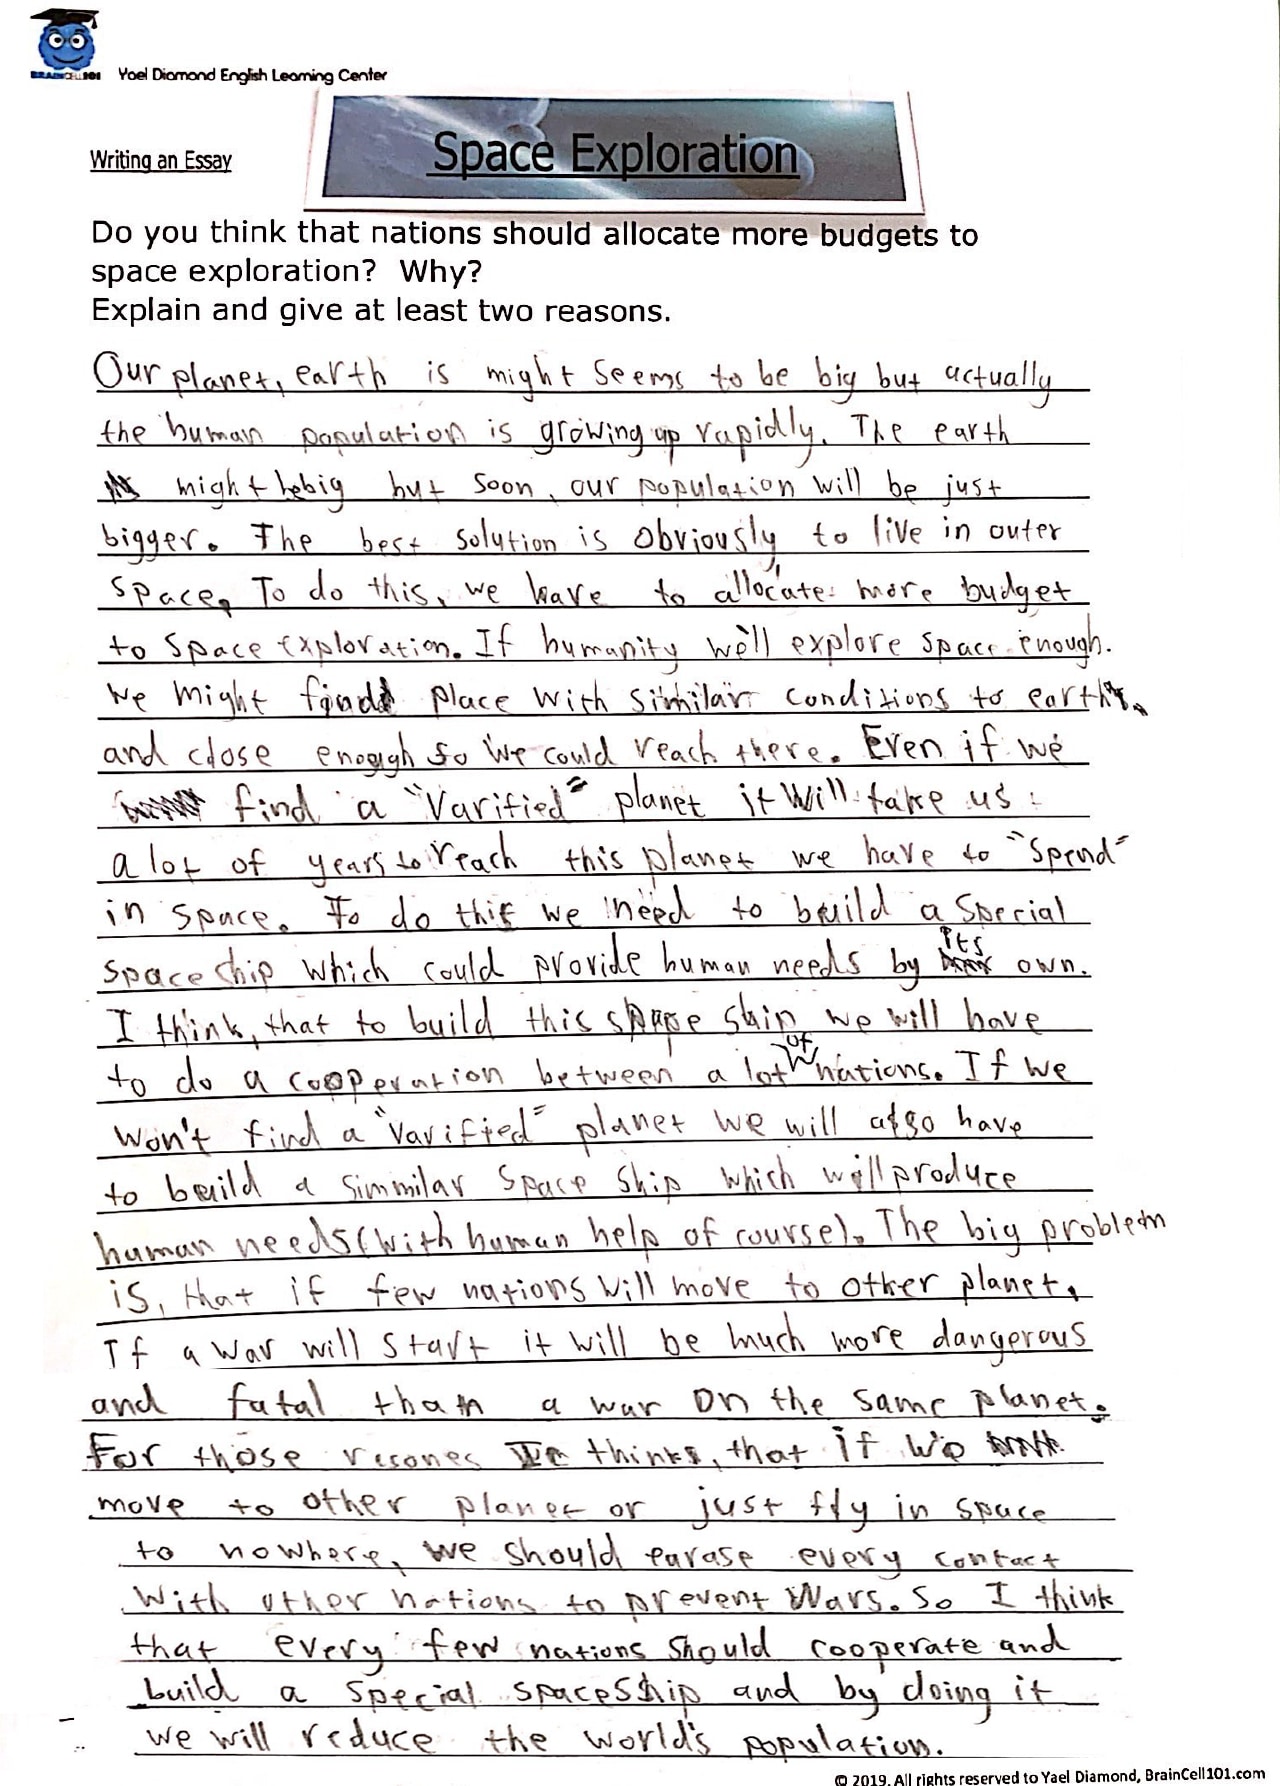 BRAINCELL101 Yael Diamond English Learning Center
Writing an Essay
Space Exploration
Do you think that nations should allocate more budgets to
space exploration? Why?
Explain and give at least two reasons.
Our planet, earth is might seems to be big but actually
the human population is growing up rapidly. The earth
might be big but soon, our population will be just
bigger. The best solution is obviously to live in outer
space. To do this, we have to allocate more budget
to space exploration. If humanity will explore space enough.
we might find place with similar conditions to earth,
and close enough so we could reach there. Even if we
find a "Varified" planet it will take us
a lot of years to reach this planet we have to "Spend"
in space. To do this we need to build a special
space ship which could provide human needs by its own.
I think, that to build this space ship we will have
to do a cooperation between a lot of nations. If we
won't find a "Varified" planet we will also have
to build a simmilar space ship which will produce
human needs (with human help of course). The big problem
is, that if few nations will move to other planet,
If a war will start it will be much more dangerous
and fatal than a war on the same planet.
For those resones I think, that if we
move to other planet or just fly in space
to nowhere, we should earase every contact
with other nations to prevent wars. So I think
that every few nations should cooperate and
build a special spaceship and by doing it
we will reduce the world's population.
© 2019. All rights reserved to Yael Diamond, BrainCell101.com